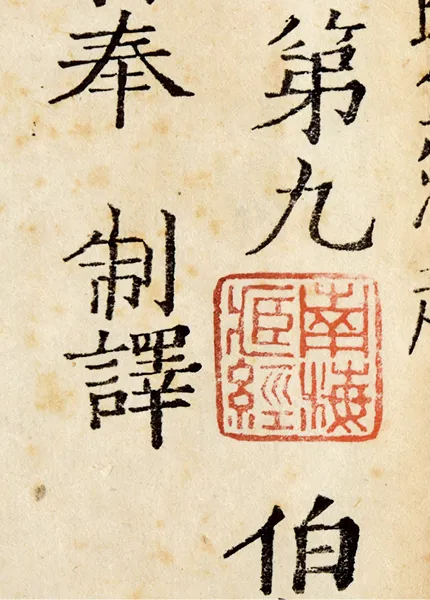 第九
南海
藏經
伯
奉
制譯